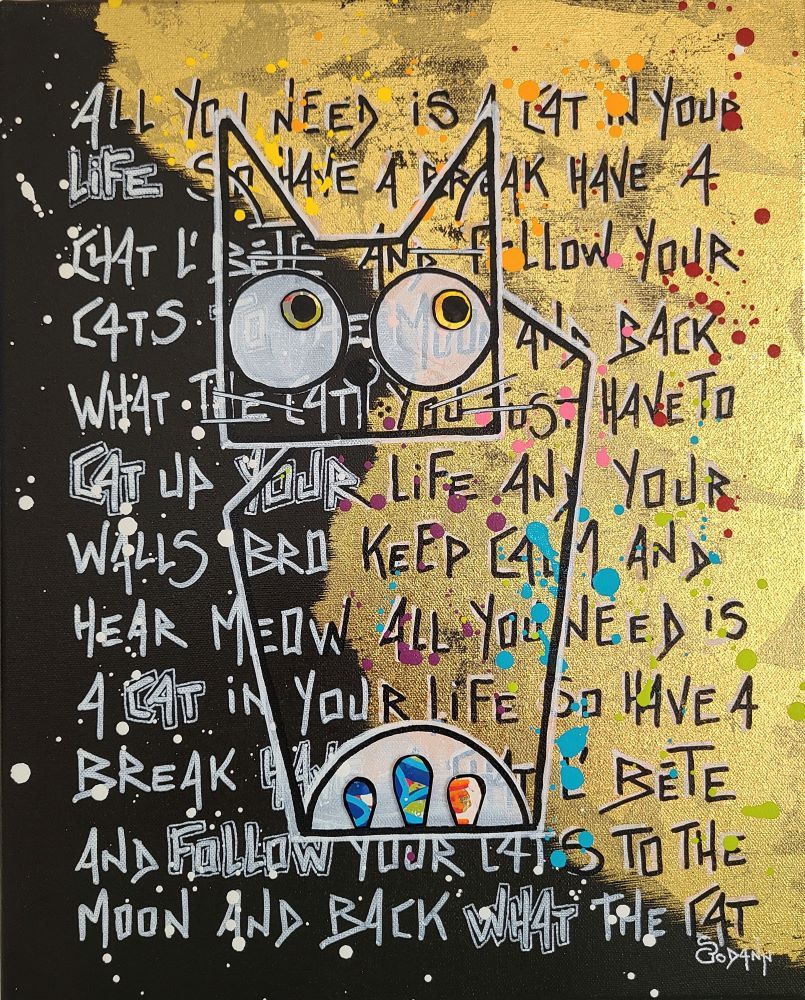 ALL YOU NEED IS A CAT IN YOUR
LIFE SO HAVE A BREAK HAVE A
CHAT L' BÊTE AND FOLLOW YOUR
CATS TO THE MOON AND BACK
WHAT THE CAT! YOU JUST HAVE TO
CAT UP YOUR LIFE AND YOUR
WALLS BRO KEEP CALM AND
HEAR MEOW ALL YOU NEED IS
A CAT IN YOUR LIFE SO HAVE A
BREAK HAVE A CHAT L' BÊTE
AND FOLLOW YOUR CATS TO THE
MOON AND BACK WHAT THE CAT
GODANN